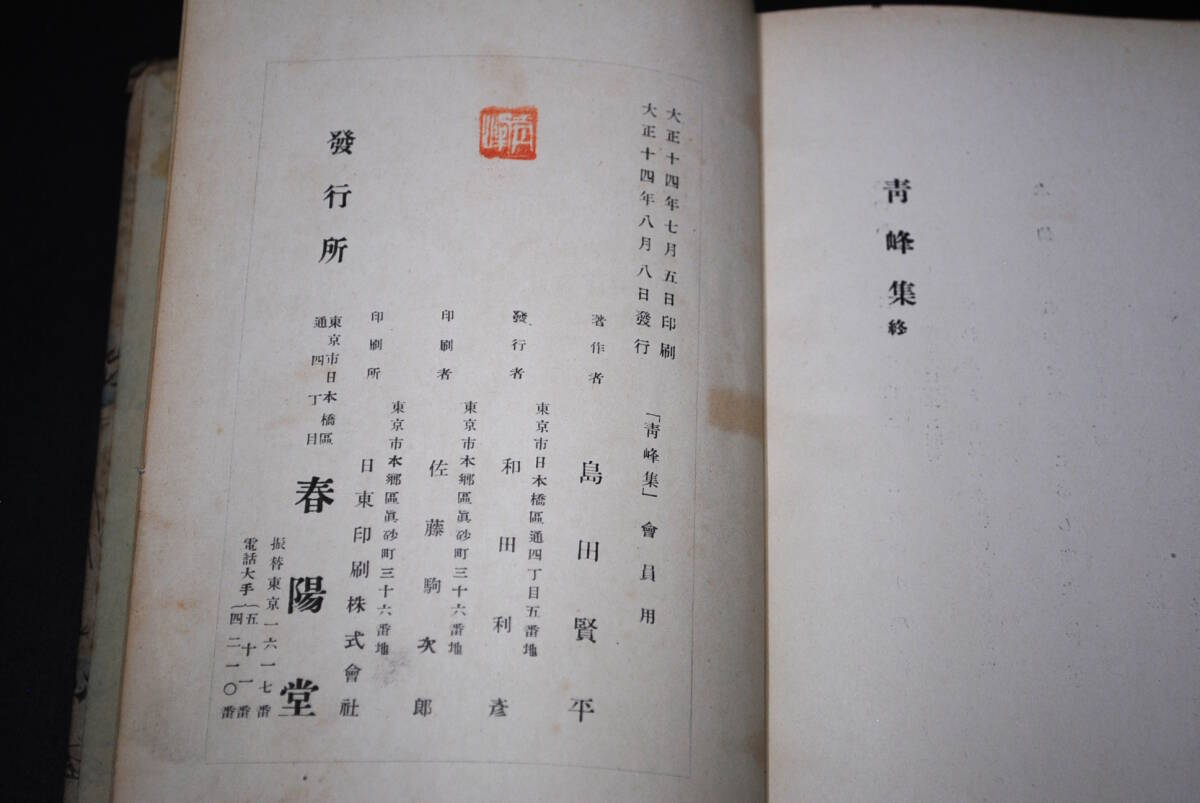 靑峰集 終
大正十四年七月五日印刷
大正十四年八月八日發行
「靑峰集」會員用
著作者 島田賢平
東京市日本橋區通四丁目五番地
發行者 和田利彥
東京市本鄕區眞砂町三十六番地
印刷者 佐藤駒次郞
東京市本鄕區眞砂町三十六番地
印刷所 日東印刷株式會社
發行所
東京市日本橋區
通四丁目
春陽堂
振替東京一六一七番
電話大手